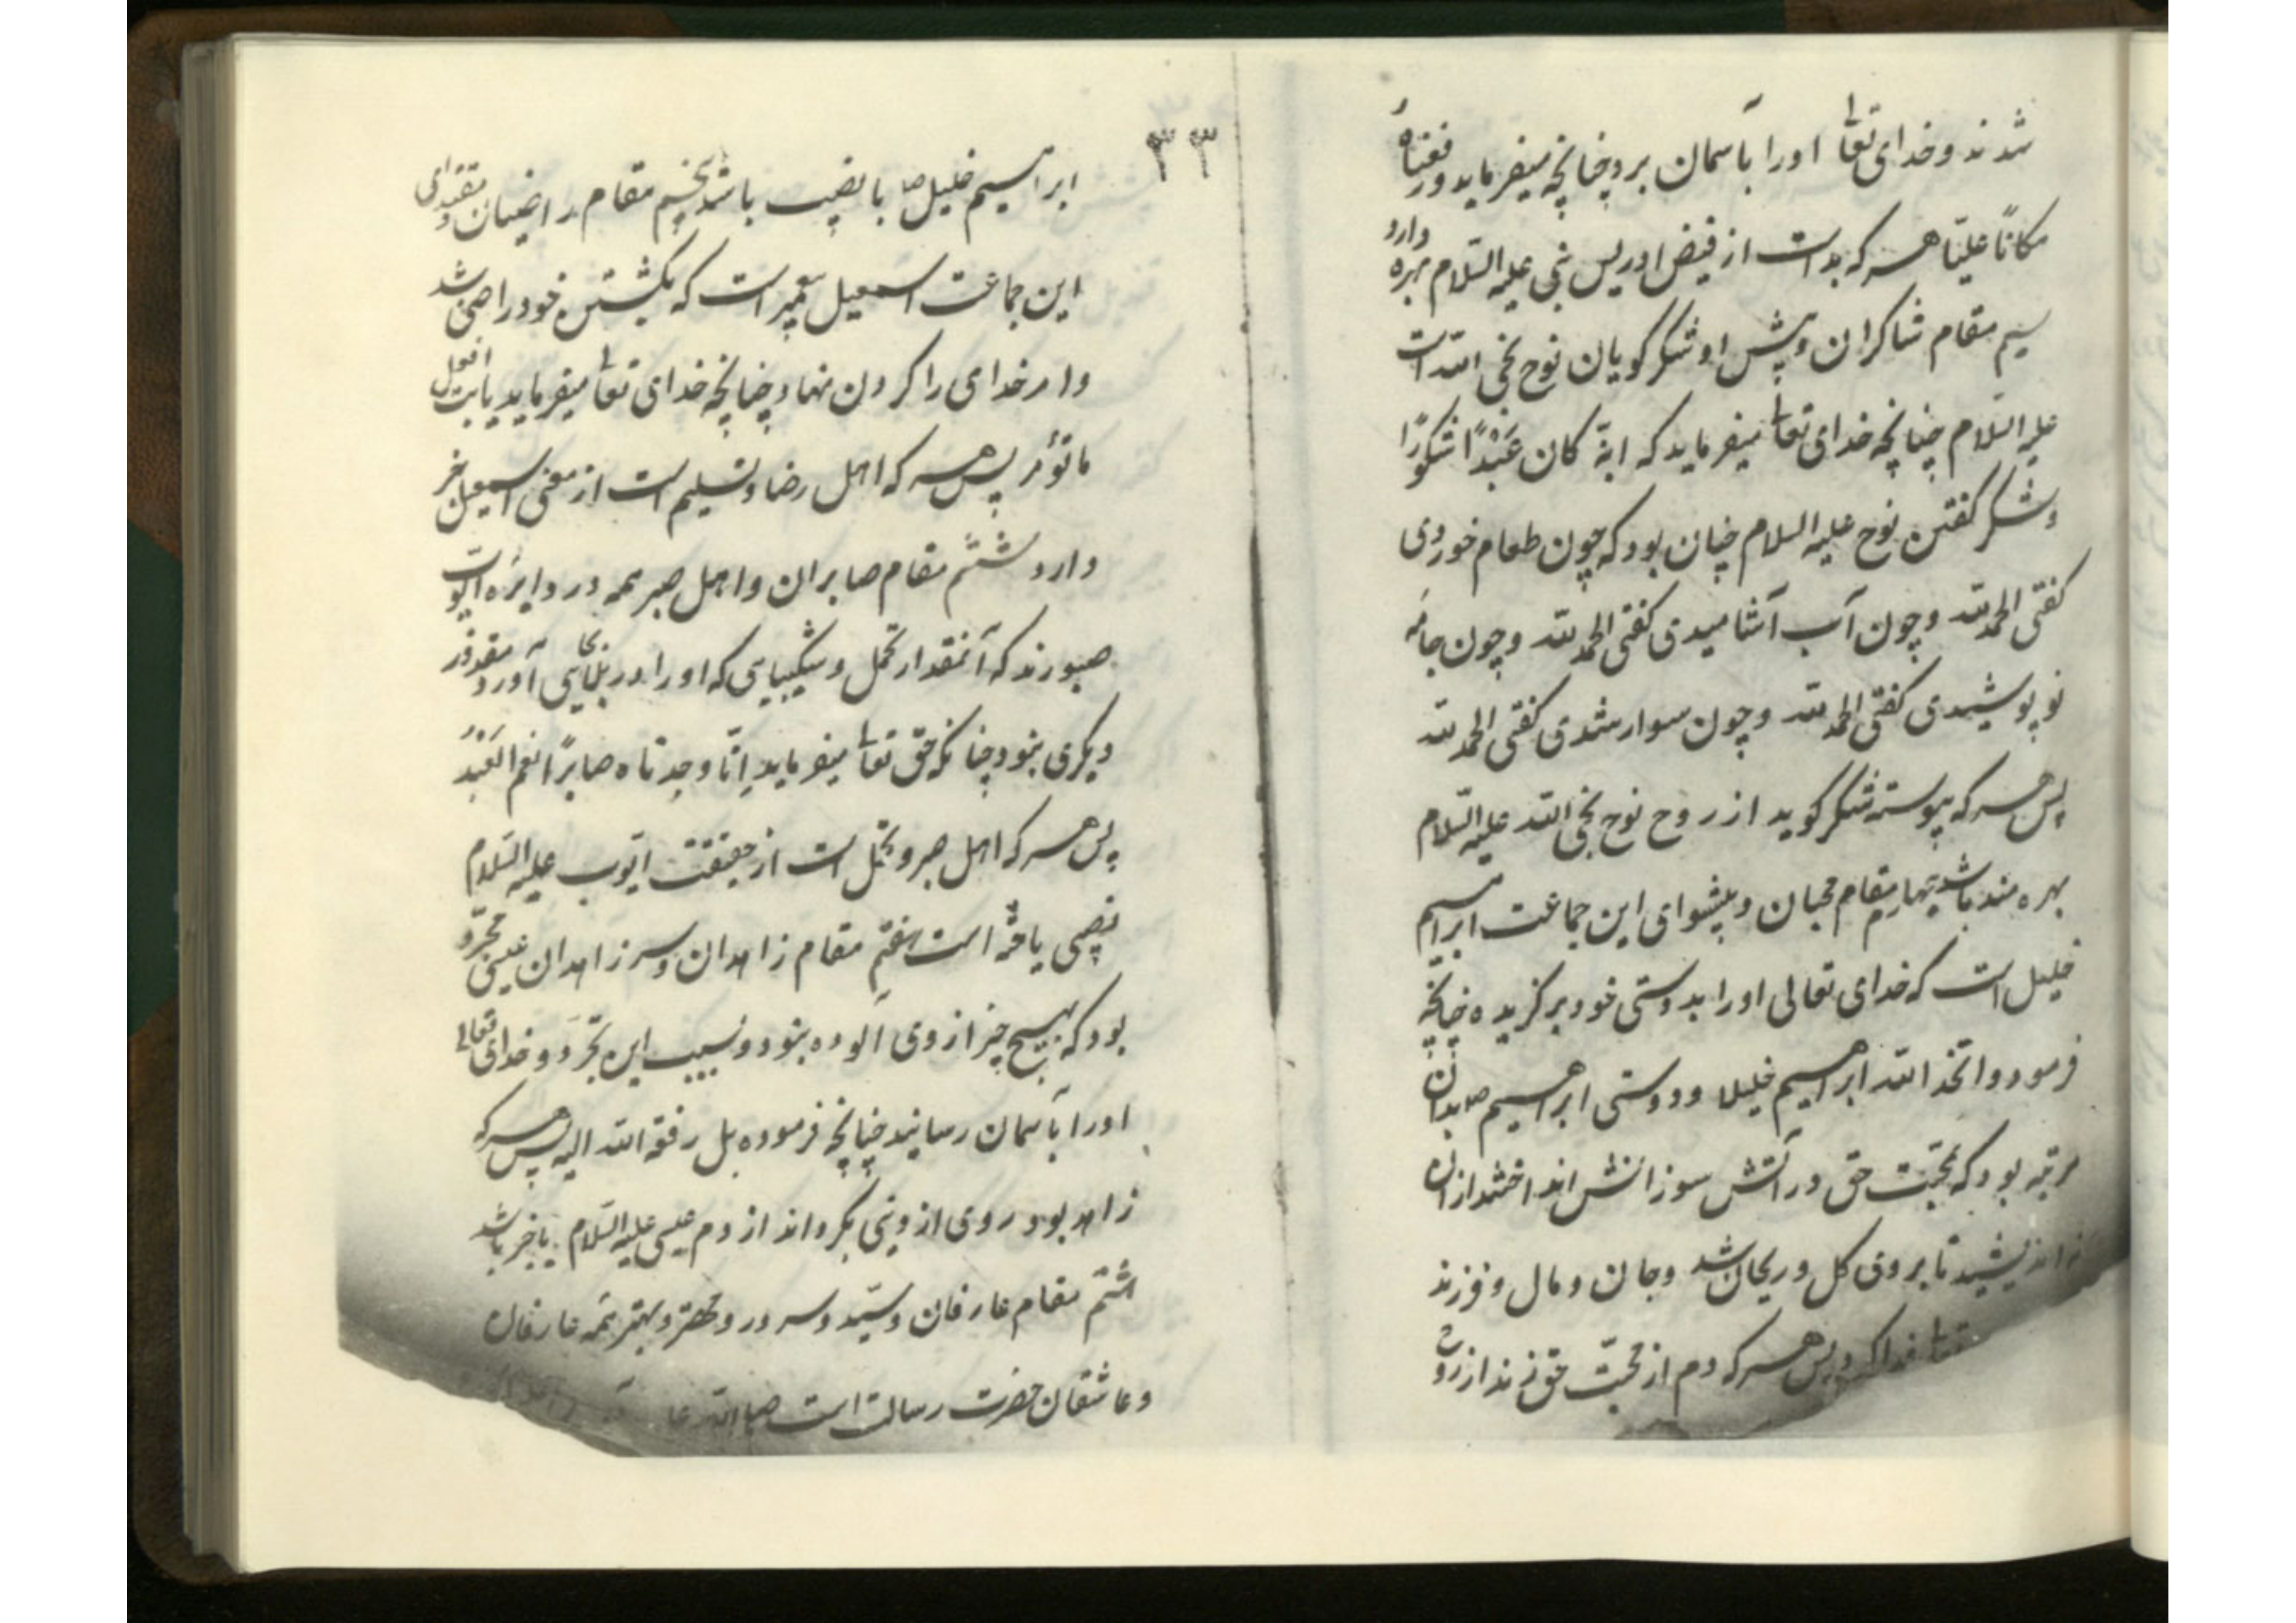 شدند و خدای تعالی او را بآسمان برد چنانچه میفرماید و رفعناه
مکاناً علیّا هر که بدانست از فیض ادریس نبی علیه السّلام بهره دارد
سیم مقام شاکران و پیش رو شکر کویان نوح نجی الله است
علیه السّلام چنانچه خدای تعالی میفرماید که انّه کان عَبْدًا شکورًا
و شکر کفتن نوح علیه السلام چنان بود که چون طعام خوردی
کفتی الحمد لله و چون آب آشامیدی کفتی الحمد لله و چون جامه
نو پوشیدی کفتی الحمد لله و چون سوار شدی کفتی الحمد لله
پس هر که پیوسته شکر کوید از روح نوح نجی الله علیه السّلام
بهره مند باشد چهارم مقام محبان و پیشوای این جماعت ابراهیم
خلیل است که خدای تعالی او را بدوستی خود برکزیده چنانچه
فرمود و اتخذ الله ابراهیم خلیلا و دوستی ابراهیم ص بدان
مرتبه بود که بمحبّت حق در آتش سوزانش انداختند از آن
نه اندیشید تا بروی کل و ریحان شد و جان و مال و فرزند
فدا کرد پس هر که دم از محبّت حق زند از روح
٣٣
ابراهیم خلیل ص با نصیب باشد پنجم مقام راضیان و مقتدای
این جماعت اسمعیل پیغمبر است که بکشتن خود راضی شد
و امر خدای را کردن نهاد چنانچه خدای تعالی میفرماید یا ابت افعل
ما تؤمر پس هر که اهل رضا و تسلیم است از معنی اسمعیل خبر
دارد ششم مقام صابران و اهل صبر همه در دایره ایّوب
صبورند که آنمقدار تحمل و شکیبایی که او را در بلایی آورد مقدور
دیکری نبود چنانکه حق تعالی میفرماید اِنّا وجدناه صابرًا نعم العَبْدُ
پس هر که اهل صبر و تحمّل است از حقیقت ایّوب علیه السّلام
نصیبی یافته است هفتم مقام زاهدان و سر زاهدان عیسی مجرّد
بود که بهیچ چیز از وی آلوده نبود و بسبب این تجرّد و خدای تعالی
او را بآسمان رسانید چنانچه فرموده بل رفعه الله الیه پس هر که
زاهد بود روی از دنیی بکرداند از دم عیسی علیه السّلام با خبر باشد
اشتم مقام عارفان و سیّد و سرور و مهتر و بهتر همه عارفان
و عاشقان حضرت رسالت است صلی الله علیه